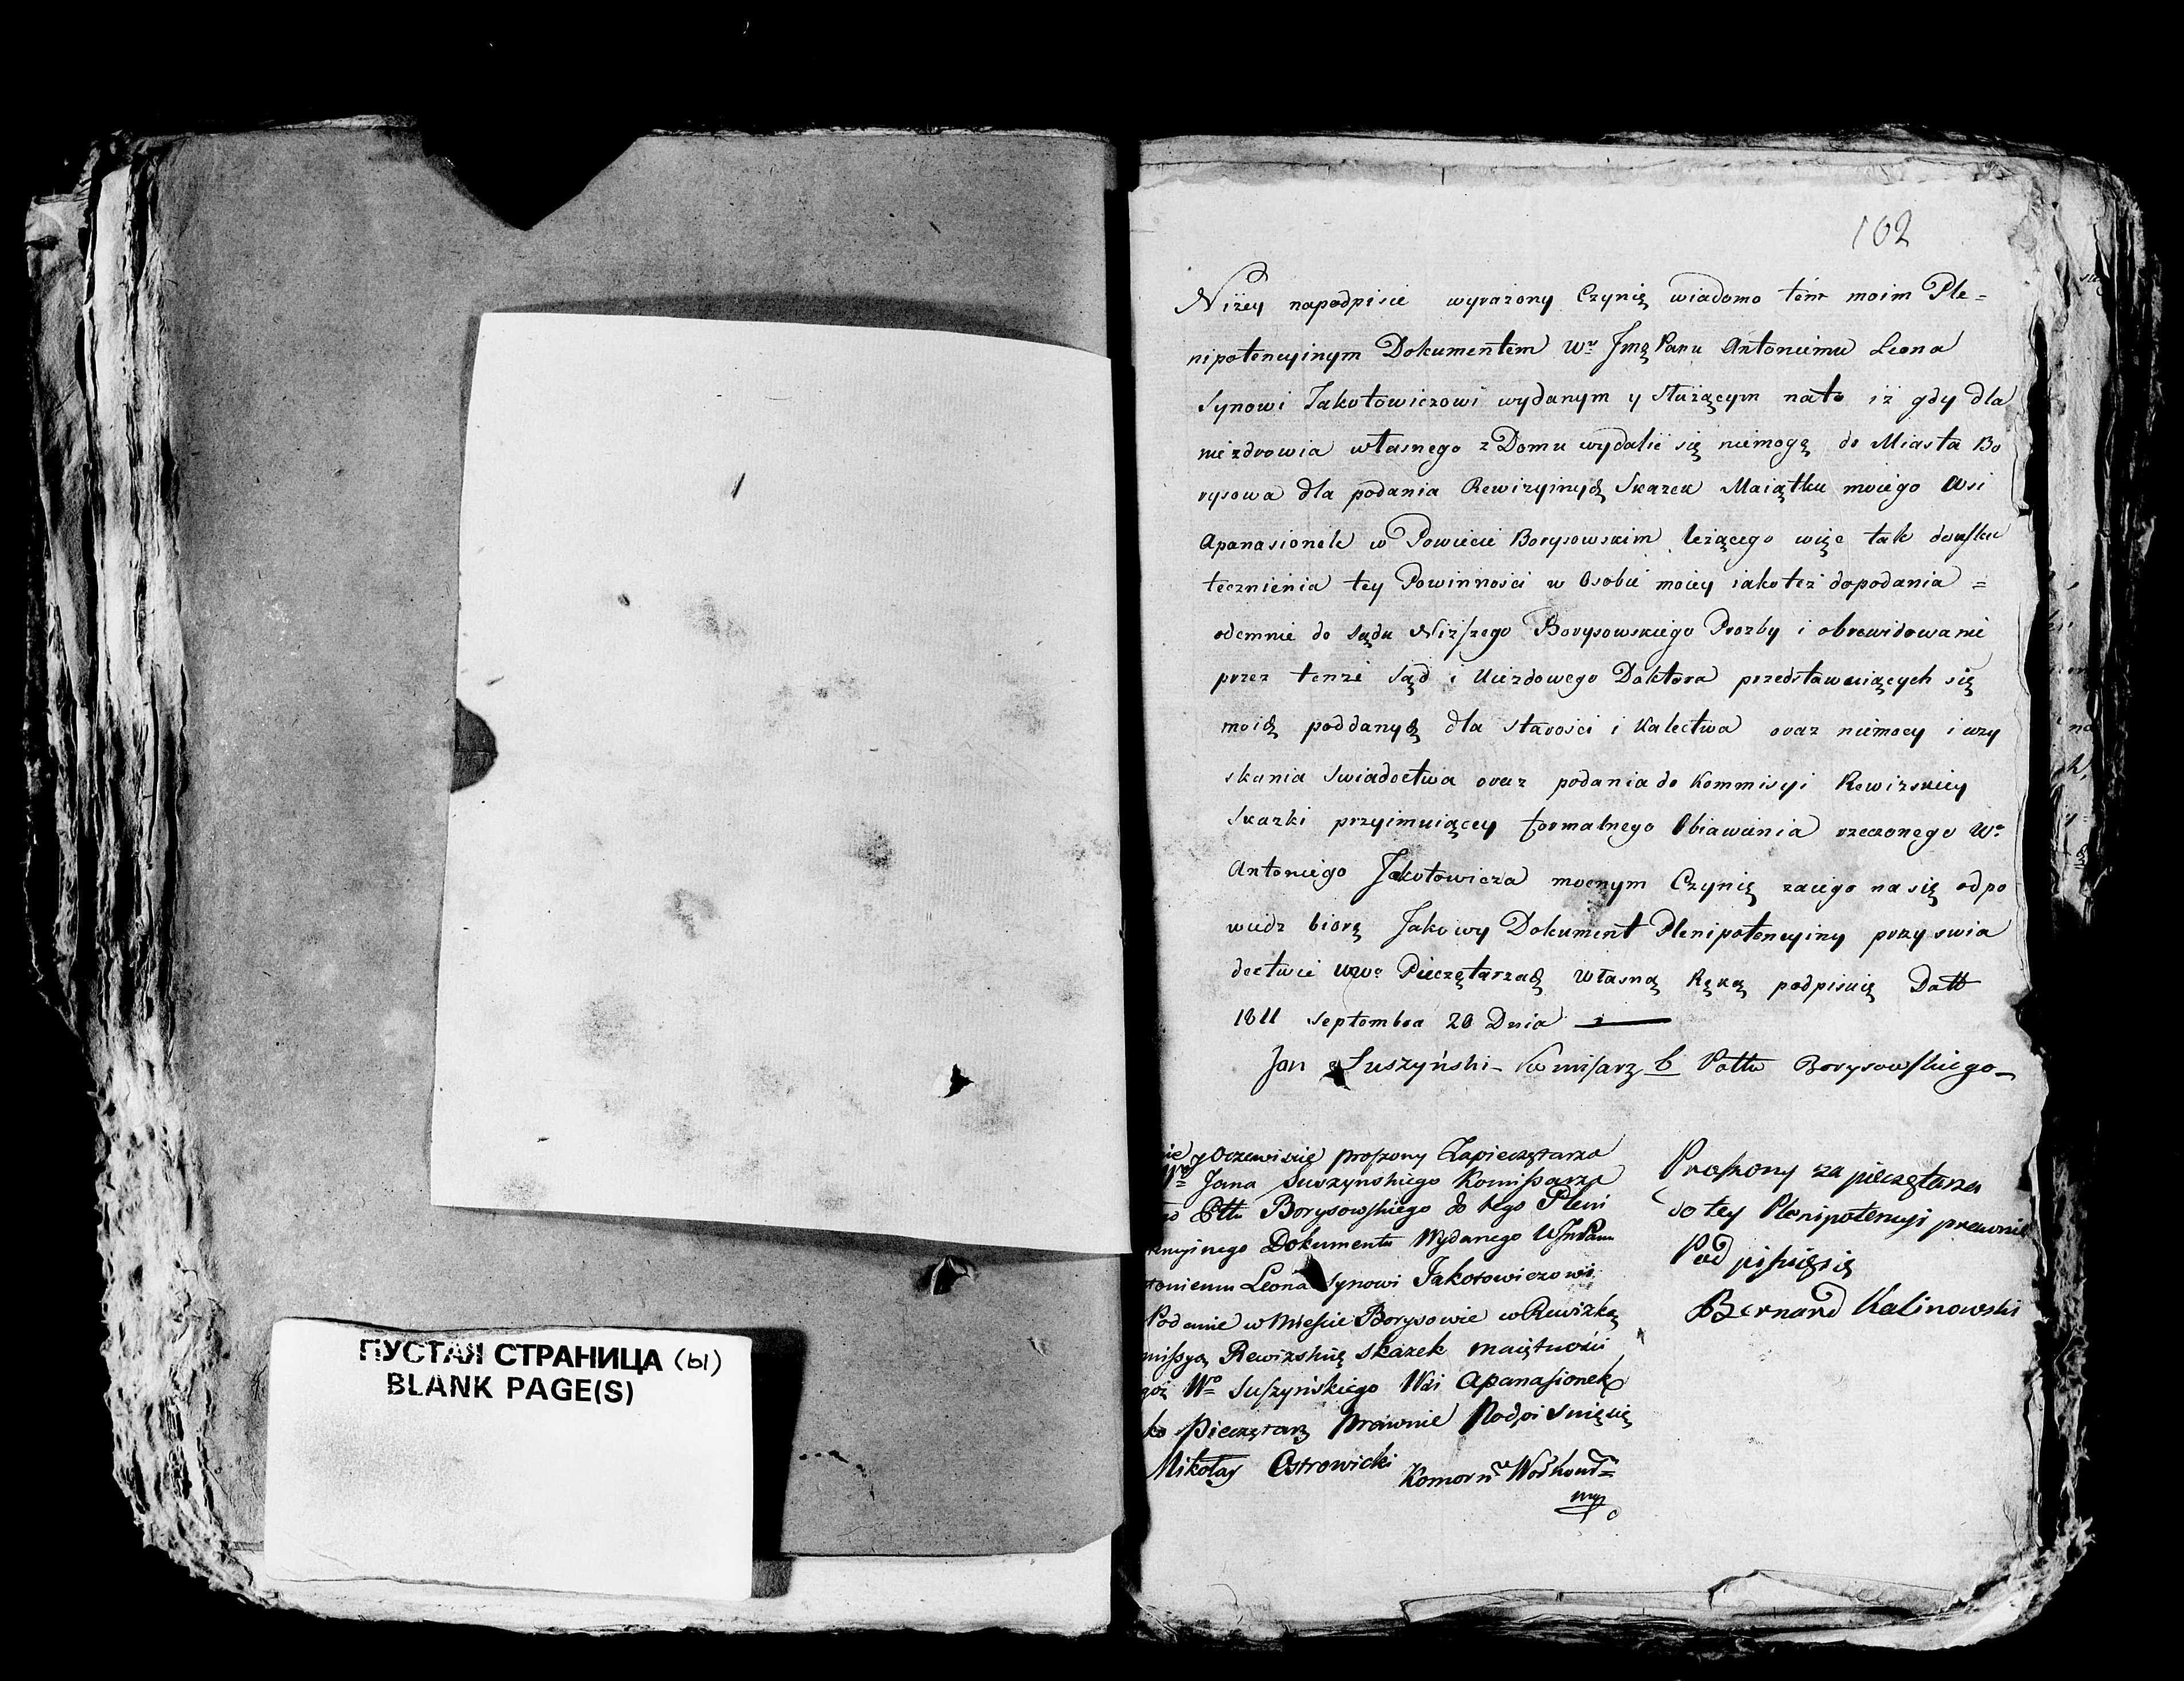 ПУСТАЯ СТРАНИЦА (Ы)
BLANK PAGE(S)
102
Niżey napodpisie wyrażony Czynię wiadomo tém moim Ple=
nipotencyinym Dokumentem Wu Jmę Panu Antoniemu Leona
Synowi Jakotowiczowi wydanym y służącym nato iż gdy dla
niezdrowia własnego z Domu wydalić się niemogę do Miasta Bo
rysowa dla podania Rewizyinych Skazek Maiątku moiego Wsi
Apanasionek w Powiecie Borysowskim leżącego więc tak douskie
tecznienia tey Powinności w Osobie moiey iakoteż dopodania =
odemnie do Sądu Niższego Borysowskiego Prozby i obrewidowanie
przez tenże Sąd i Uiezdowego Doktora przedstawuiących się
moich poddanych dla starości i Kalectwa oraz niemocy i uzy
skania Swiadectwa oraz podania do Kommisyi Rewizskiey
Skazki przyimuiącey formalnego Obiawienia rzeczonego Wo
Antoniego Jakotowicza mocnym Czynię zaiego na się odpo
wiedz biorę Jakowy Dokument Plenipotencyiny przy swia
dectwie WWo Pieczętarzach własną Ręką podpisuię Datt
1811 Septembra 20 Dnia
Jan Suszyński Komisarz b Pottu Borysowskiego
nie y Oczewiscie proszony Zapieczętarza
Wo Jana Suszynskiego Komissarza
go Pttu Borysowskiego do tego Pleni
tencyinego Dokumentu Wydanego WJmPanu
toniemu Leona Synowi Jakotowiczowi
Podanie w Mieście Borysowie w Rewizką
missyą Rewizską skazek maiętności
goż Wo Suszyńskiego Wsi Apanasionek
ko Pieczętarz Prawnie Podpisuięsię
Mikołay Ostrowicki Komorn
Proszony za pieczętarza
do tey Plenipotencyi prawnie
Podpisuięsię
Bernard Kalinowski